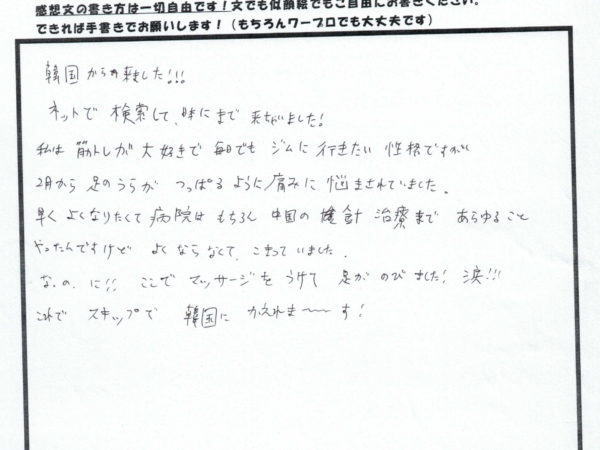 感想文の書き方は一切自由です！文でも似顔絵でもご自由にお書きください。
できれば手書きでお願いします！（もちろんワープロでも大丈夫です）
韓国から来ました!!!
ネットで検索して、まで来ちゃいました!
私は筋トレが大好きで毎日でもジムに行きたい性格ですが
2月から足のうらがつっぱるように痛みに悩まされていました。
早くよくなりたくて病院はもちろん中国の針治療まであらゆること
やったんですけどよくならなくて、こまっていました。
なのに!! ここでマッサージをうけて足がのびました! 涙!!!
これでスキップで韓国にかえれま〜〜す!